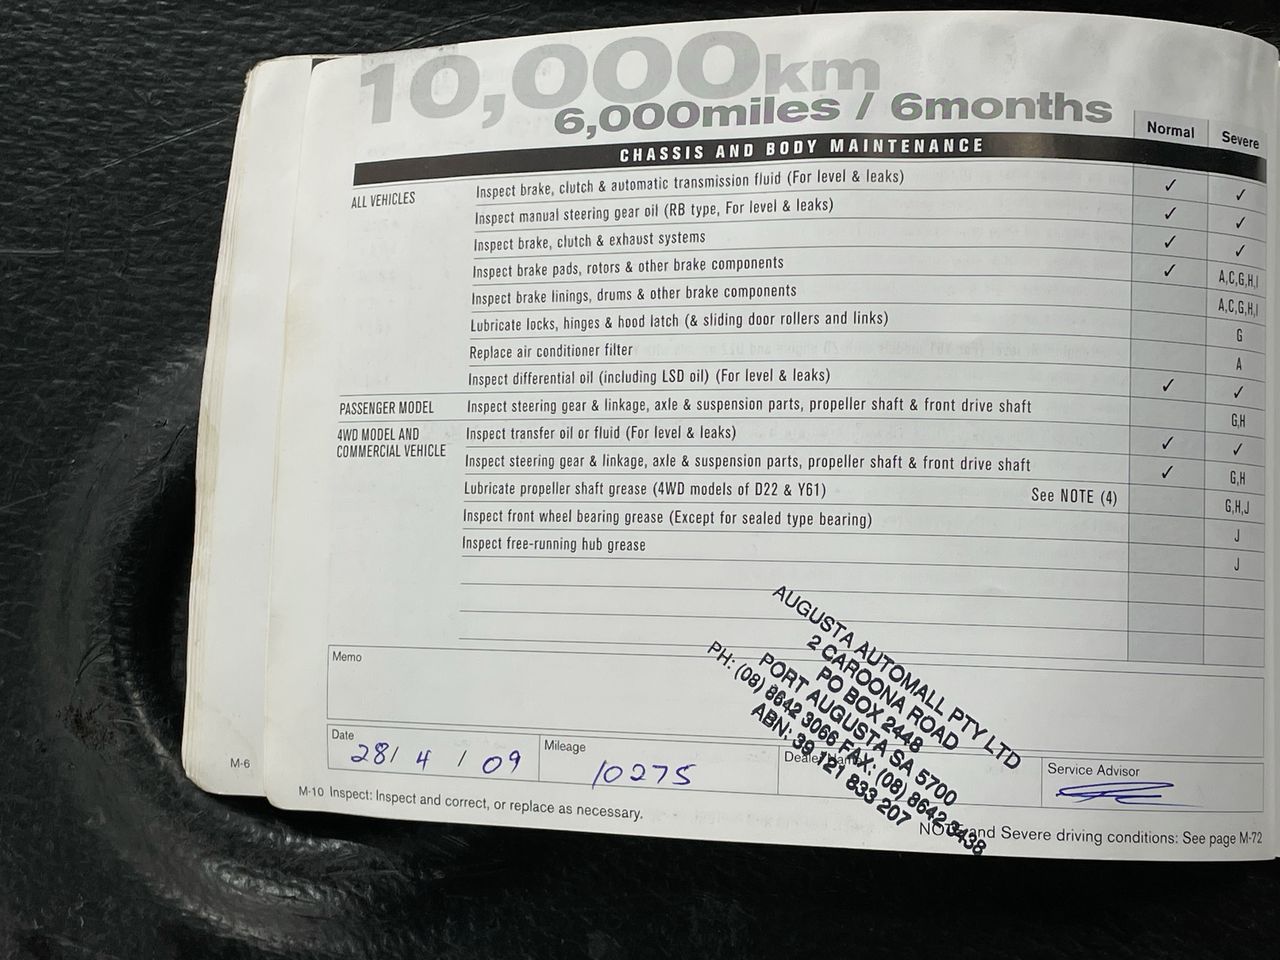 10,000km
6,000miles / 6months
Normal
Severe
CHASSIS AND BODY MAINTENANCE
ALL VEHICLES
Inspect brake, clutch & automatic transmission fluid (For level & leaks) ✓ ✓
Inspect manual steering gear oil (RB type, For level & leaks) ✓ ✓
Inspect brake, clutch & exhaust systems ✓ ✓
Inspect brake pads, rotors & other brake components ✓ A,C,G,H,I
Inspect brake linings, drums & other brake components A,C,G,H,I
Lubricate locks, hinges & hood latch (& sliding door rollers and links) G
Replace air conditioner filter A
Inspect differential oil (including LSD oil) (For level & leaks) ✓ ✓
PASSENGER MODEL
Inspect steering gear & linkage, axle & suspension parts, propeller shaft & front drive shaft G,H
4WD MODEL AND
COMMERCIAL VEHICLE
Inspect transfer oil or fluid (For level & leaks) ✓ ✓
Inspect steering gear & linkage, axle & suspension parts, propeller shaft & front drive shaft ✓ G,H
Lubricate propeller shaft grease (4WD models of D22 & Y61) See NOTE (4) G,H,J
Inspect front wheel bearing grease (Except for sealed type bearing) J
Inspect free-running hub grease J
AUGUSTA AUTOMALL PTY LTD
2 CAROONA ROAD
PO BOX 2448
PORT AUGUSTA SA 5700
PH: (08) 8642 3066 FAX: (08) 8642 3438
ABN: 39 121 833 207
Memo
Date
28/ 4 / 09
Mileage
10275
Service Advisor
M-6
M-10 Inspect: Inspect and correct, or replace as necessary.
and Severe driving conditions: See page M-72